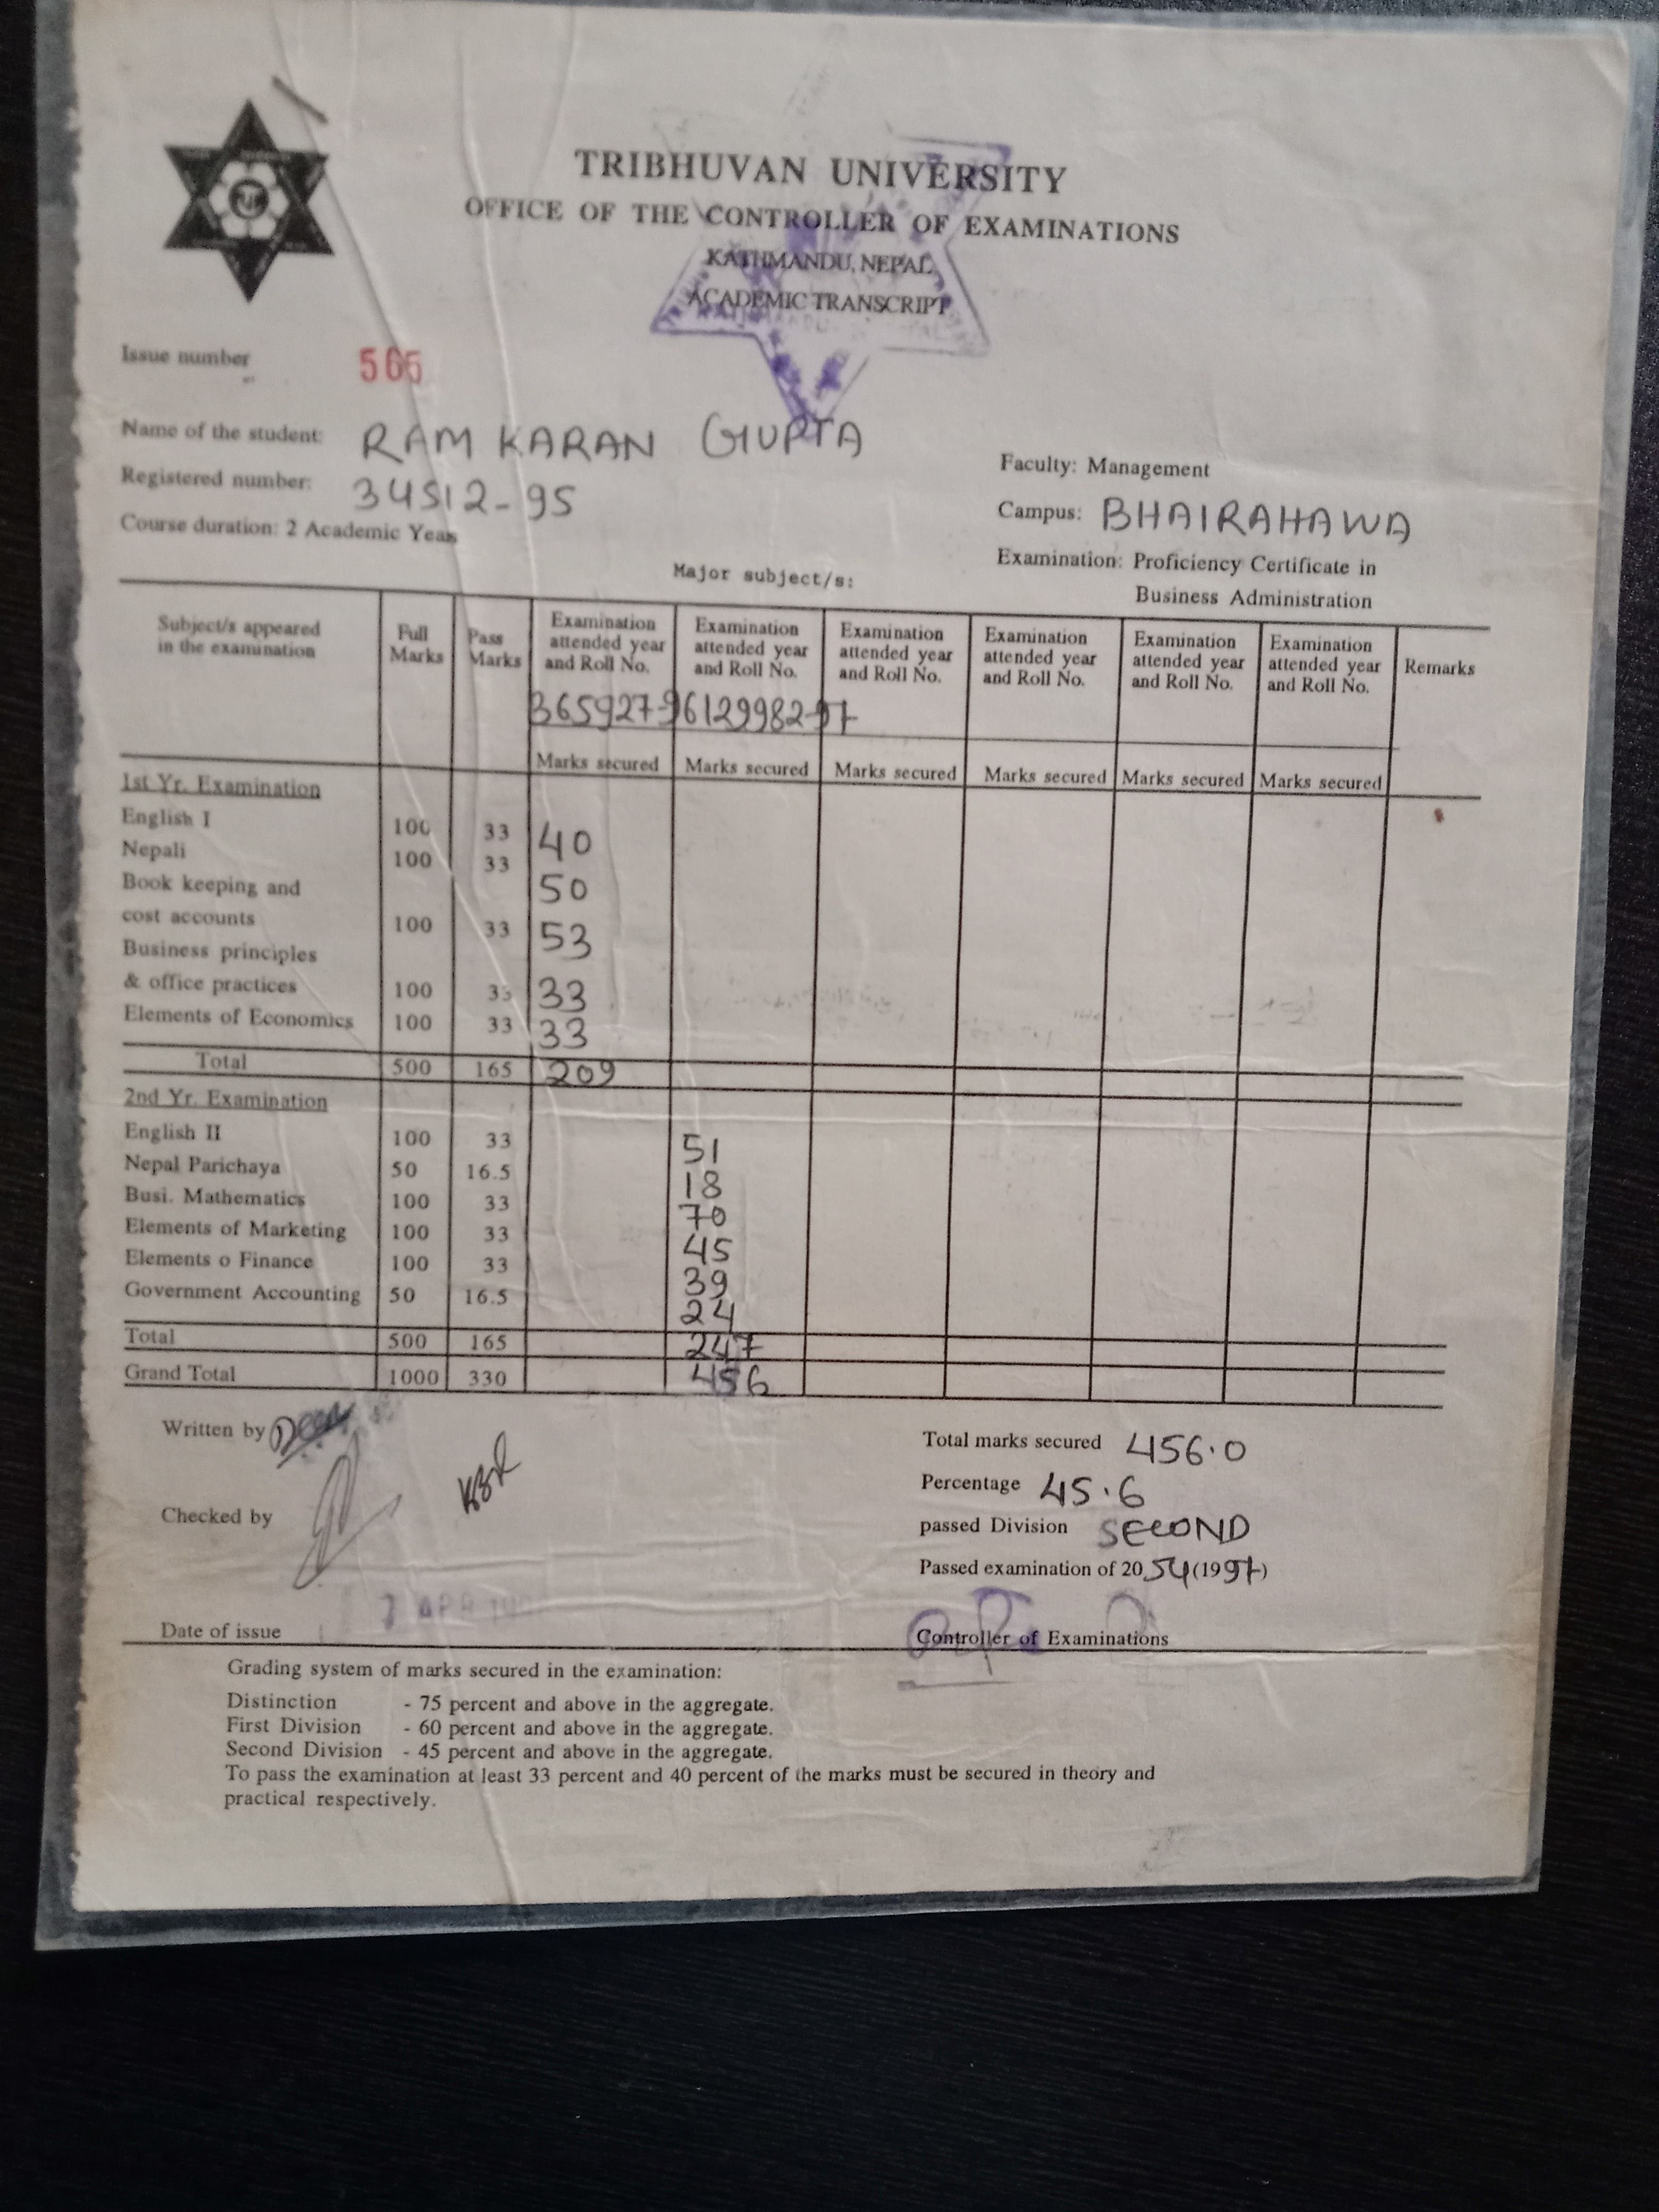 TRIBHUVAN UNIVERSITY
OFFICE OF THE CONTROLLER OF EXAMINATIONS
KATHMANDU, NEPAL
ACADEMIC TRANSCRIPT
Issue number 566
Name of the student: RAM KARAN GUPTA
Faculty: Management
Registered number: 34512-95
Campus: BHAIRAHAWA
Course duration: 2 Academic Years
Examination: Proficiency Certificate in
Business Administration
Major subject/s:
Subject/s appeared in the examination Full Marks Pass Marks Examination attended year and Roll No. Examination attended year and Roll No. Examination attended year and Roll No. Examination attended year and Roll No. Examination attended year and Roll No. Examination attended year and Roll No. Remarks
365927-96 129982-97
Marks secured Marks secured Marks secured Marks secured Marks secured Marks secured
1st Yr. Examination
English I 100 33 40
Nepali 100 33 50
Book keeping and
cost accounts 100 33 53
Business principles
& office practices 100 33 33
Elements of Economics 100 33 33
Total 500 165 209
2nd Yr. Examination
English II 100 33 51
Nepal Parichaya 50 16.5 18
Busi. Mathematics 100 33 70
Elements of Marketing 100 33 45
Elements o Finance 100 33 39
Government Accounting 50 16.5 24
Total 500 165 247
Grand Total 1000 330 456
Written by
Total marks secured 456.0
Percentage 45.6
Checked by
passed Division SECOND
Passed examination of 2054 (1997)
Date of issue APR
Controller of Examinations
Grading system of marks secured in the examination:
Distinction - 75 percent and above in the aggregate.
First Division - 60 percent and above in the aggregate.
Second Division - 45 percent and above in the aggregate.
To pass the examination at least 33 percent and 40 percent of the marks must be secured in theory and
practical respectively.